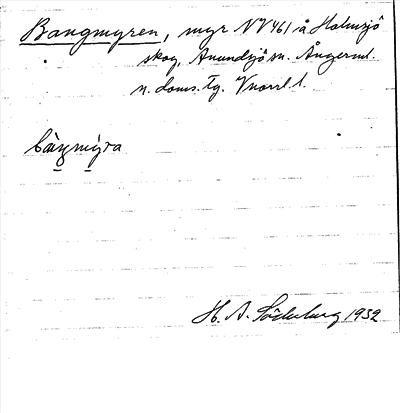 Bangmyren, myr NV461 å Holmsjö
skog, Anundsjö sn. Ångerml.
n. doms. Tg. Vnorrl. l.
bàŋmỳra
H. A. Söderberg 1932